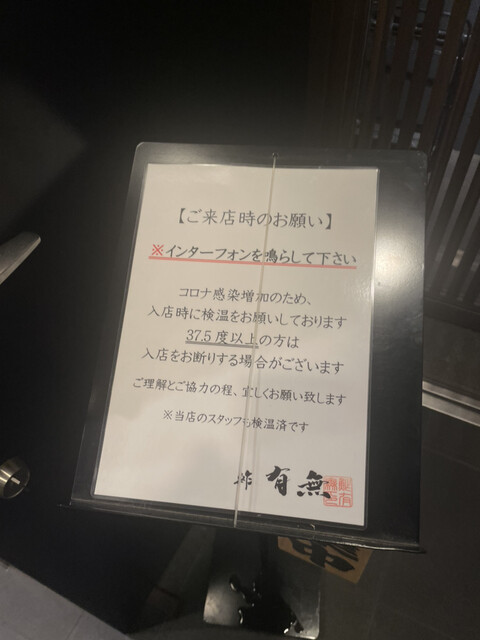 【ご来店時のお願い】
※インターフォンを鳴らして下さい
コロナ感染増加のため、
入店時に検温をお願いしております
37.5度以上の方は
入店をお断りする場合がございます
ご理解とご協力の程、宜しくお願い致します
※当店のスタッフも検温済です
有無